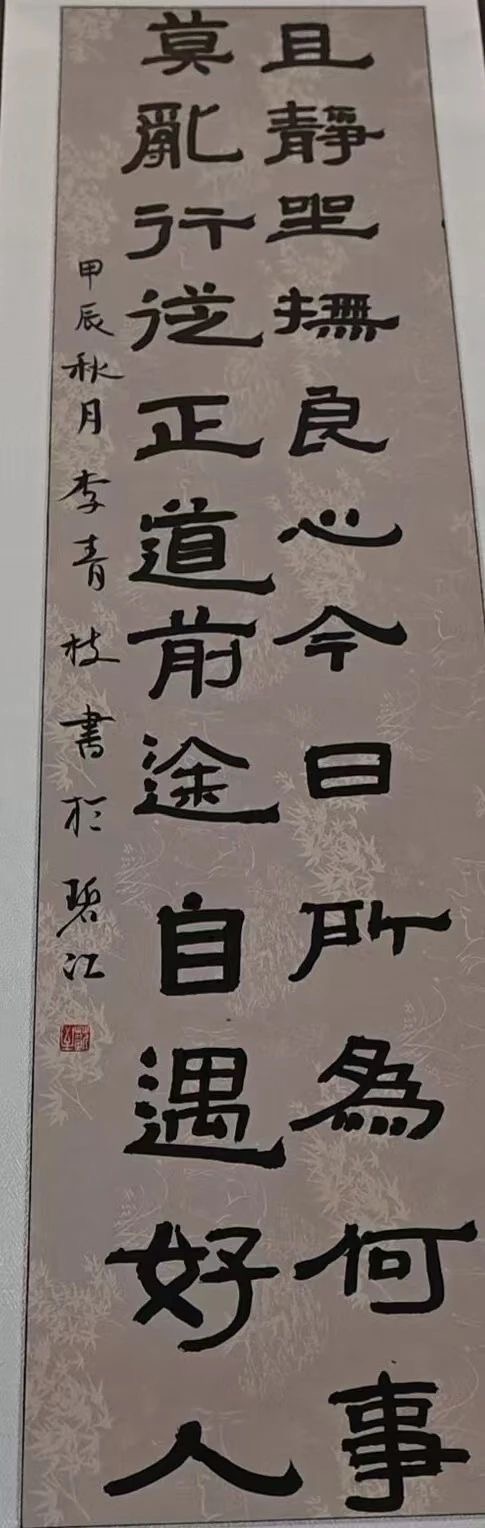 且靜坐撫良心今日所為何事
莫亂行從正道前途自遇好人
甲辰秋月李青枝書於碧江